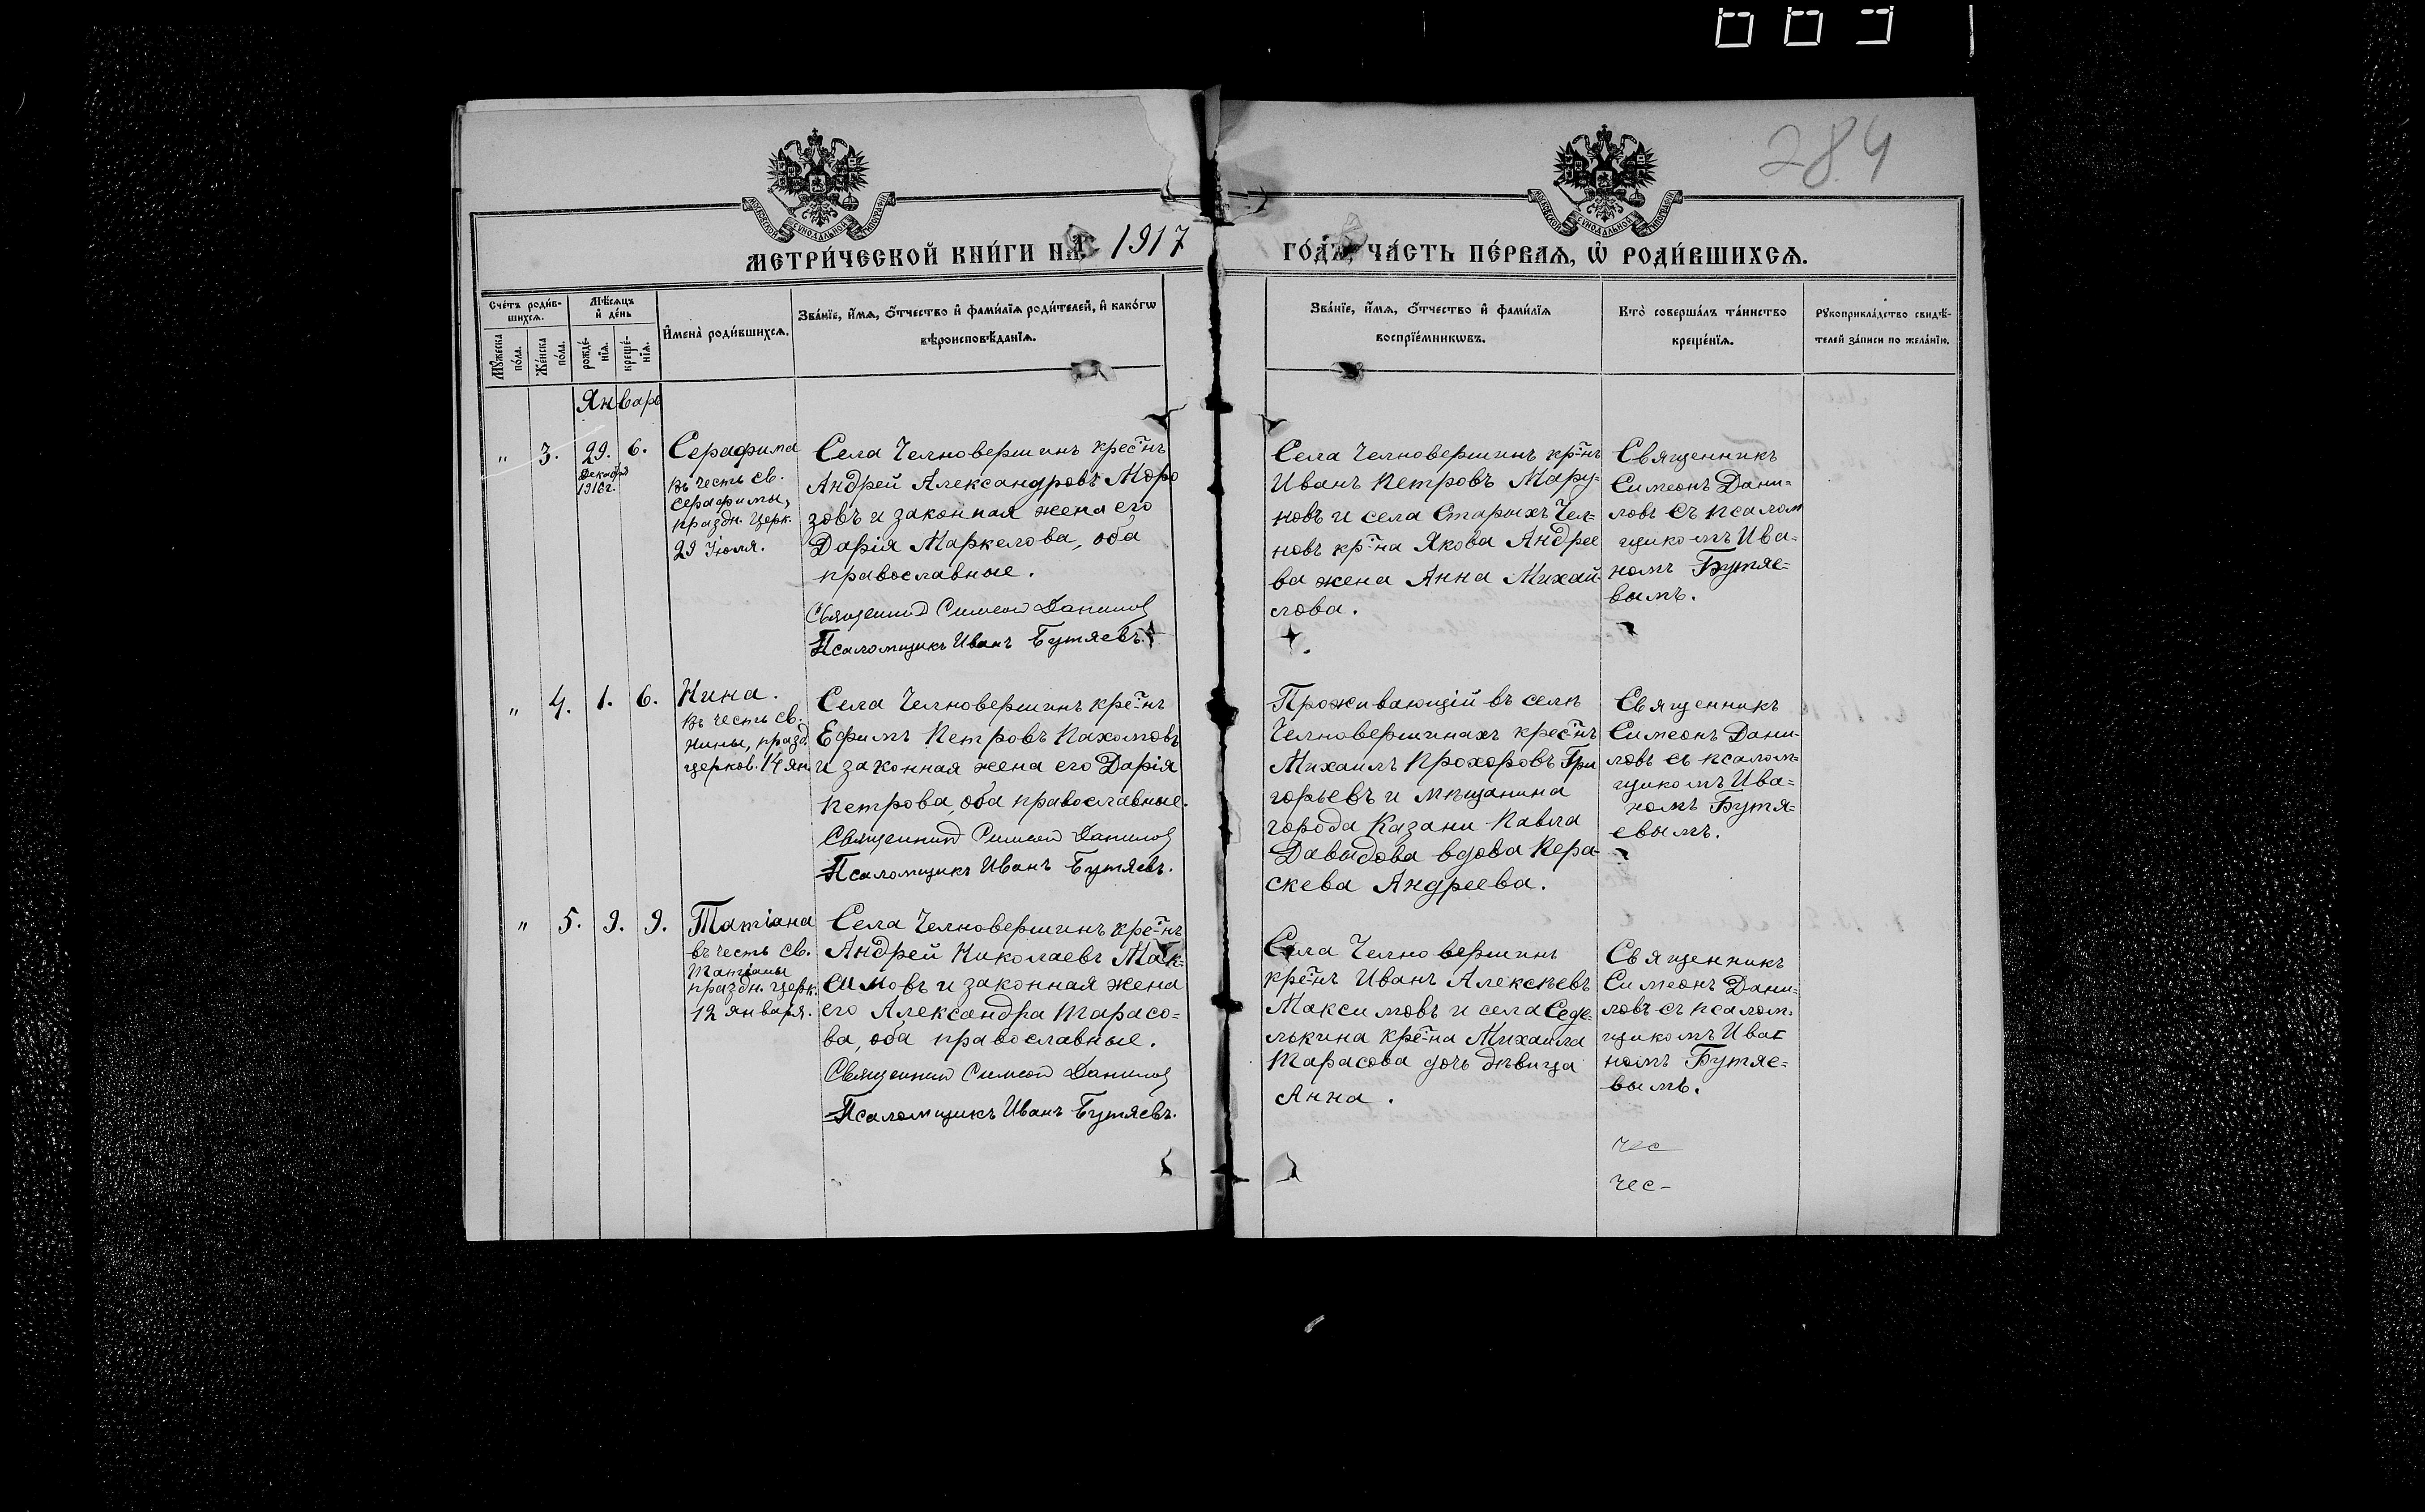 284
МЕТРИ́ЧЕСКОЙ КНИ́ГИ НА 1917
ГО́ДЪ, ЧА́СТЬ ПЕ́РВАЯ, Ѡ҆ РОДИ́ВШИХСЯ.
Сче́тъ роди́в-
шихся.
Мѣ́сяцъ
и҆ де́нь
Мꙋ́жеска
по́ла.
Же́нска
по́ла.
рожде́-
нїя.
креще́-
нїя.
И҆мена̀ роди́вшихся.
Зва́нїе, и҆́мя, ѻ҆́тчество и҆ фами́лїя роди́телей, и҆ како́гѡ
вѣроисповѣ́данїя.
Зва́нїе, и҆́мя, ѻ҆́тчество и҆ фами́лїя
воспрїе́мникѡвъ.
Кто̀ соверша́лъ та́инство
креще́нїя.
Рꙋкоприкла́дство свидѣ́-
телей за́писи по жела́нїю.
Январь
" 3. 29. 6.
Декабря
1916 г.
Серафима
въ честь св.
Серафимы,
праздн. церк.
29 Іюля.
Села Челновершинъ крес-нъ
Андрей Александровъ Моро
зовъ и законная жена его
Дарія Маркелова, оба
православные.
Священникъ Симеонъ Даниловъ
Псаломщикъ Иванъ Бутяевъ.
Села Челновершинъ кр-нъ
Иванъ Петровъ Мару-
новъ и села Старыхъ Чел-
новъ кр-на Якова Андрее
ва жена Анна Михай-
лова.
Священникъ
Симеонъ Дани-
ловъ съ псалом
щикомъ Ива-
номъ Бутяе-
вымъ.
" 4. 1. 6.
Нина.
въ честь св.
Нины, празд.
церков. 14 ян.
Села Челновершинъ кре-нъ
Ефимъ Петровъ Пахомовъ
и законная жена его Дарія
Петрова, оба православные.
Священникъ Симеонъ Даниловъ
Псаломщикъ Иванъ Бутяевъ.
Проживающій въ селѣ
Челновершинахъ крес-нъ
Михаилъ Прохоровъ Гри
горьевъ и мѣщанина
города Казани Павла
Давыдова вдова Пера-
скева Андреева.
Священникъ
Симеонъ Дани-
ловъ съ псалом-
щикомъ Ива-
номъ Бутя-
евымъ.
" 5. 9. 9.
Татіана
въ честь св.
Татіаны
праздн. церк.
12 января.
Села Челновершинъ кре-нъ
Андрей Николаевъ Мак-
симовъ и законная жена
его Александра Тарасо-
ва, оба православные.
Священникъ Симеонъ Даниловъ
Псаломщикъ Иванъ Бутяевъ.
Села Челновершинъ
кре-нъ Иванъ Алексѣевъ
Максимовъ и села Седе-
лькина кре-на Михаила
Тарасова дочь дѣвица
Анна.
Священникъ
Симеонъ Дани-
ловъ съ псалом-
щикомъ Ива-
номъ Бутяе-
вымъ.
чес
чес-